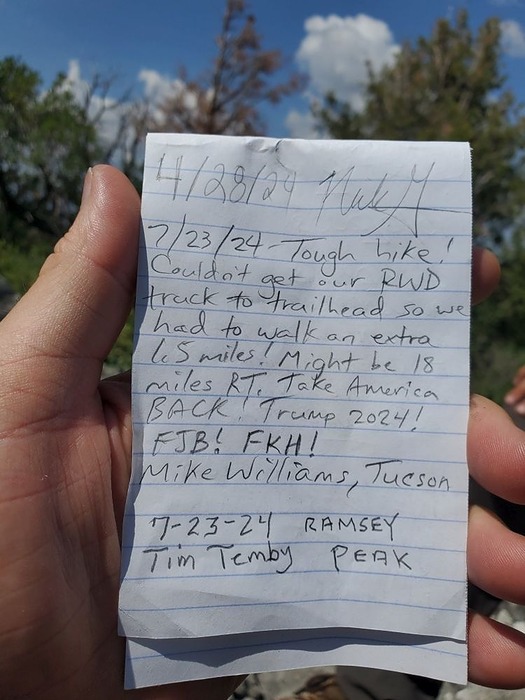 4/28/24
7/23/24 - Tough hike!
Couldn't get our RWD
truck to trailhead so we
had to walk an extra
1.5 miles! Might be 18
miles RT. Take America
BACK! Trump 2024!
FJB! FKH!
Mike Williams, Tucson
7-23-24 RAMSEY
Tim Temby PEAK